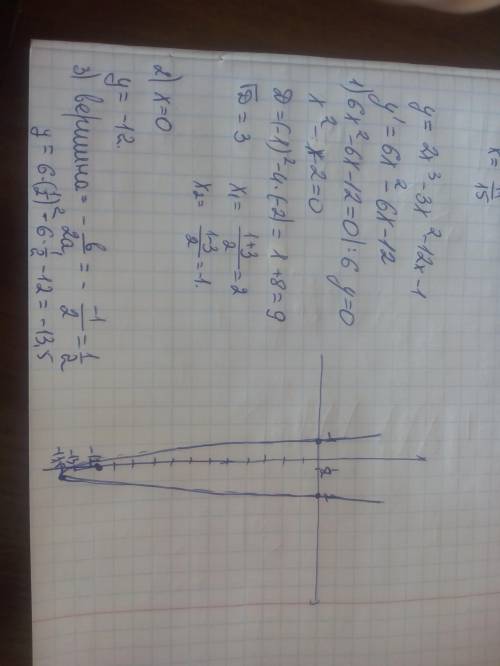 x = π/15
y = 2x³ - 3x² - 12x - 1
y' = 6x² - 6x - 12
1) 6x² - 6x - 12 = 0 | : 6 y = 0
x² - x - 2 = 0
D = (-1)² - 4·(-2) = 1 + 8 = 9
√D = 3 x₁ = (1+3)/2 = 2
x₂ = (1-3)/2 = -1.
2) x = 0
y = -12.
3) вершина = - b/2a = - -1/2 = 1/2
y = 6·(1/2)² - 6·1/2 - 12 = -13,5
-1
2